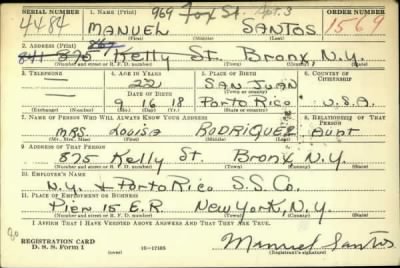 969 Fox St. Apt. 3
SERIAL NUMBER 1. NAME (Print) ORDER NUMBER
4484 MANUEL SANTOS 1569
(First) (Middle) (Last)
2. ADDRESS (Print) 867
841 875 Kelly St. Bronx, N.Y.
(Number and street or R. F. D. number) (Town) (County) (State)
3. TELEPHONE 4. AGE IN YEARS 5. PLACE OF BIRTH 6. COUNTRY OF CITIZENSHIP
22 SAN JUAN
DATE OF BIRTH (Town or county)
9 16 18 Porto Rico U.S.A.
(Exchange) (Number) (Mo.) (Day) (Yr.) (State or country)
7. NAME OF PERSON WHO WILL ALWAYS KNOW YOUR ADDRESS 8. RELATIONSHIP OF THAT PERSON
MRS. LOUISA RODRIQUEZ AUNT
(Mr., Mrs., Miss) (First) (Middle) (Last)
9. ADDRESS OF THAT PERSON
875 Kelly St. Bronx N.Y.
(Number and street or R. F. D. number) (Town) (County) (State)
10. EMPLOYER'S NAME
N.Y. + Porto Rico S.S. Co.
11. PLACE OF EMPLOYMENT OR BUSINESS
Pier 15 E.R. New York, N.Y.
(Number and street or R. F. D. number) (Town) (County) (State)
I AFFIRM THAT I HAVE VERIFIED ABOVE ANSWERS AND THAT THEY ARE TRUE.
REGISTRATION CARD
D. S. S. Form 1 (over) 16—17105 Manuel Santos
(Registrant's signature)